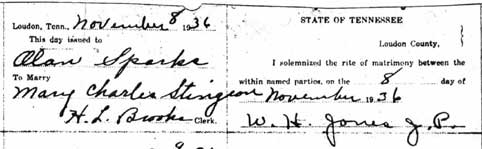 Loudon, Tenn., November 8 1936
This day issued to
Alan Sparks
To Marry
Mary Charles Stingeon
H. L. Brooks Clerk.
STATE OF TENNESSEE
Loudon County,
I solemnized the rite of matrimony between the
within named parties, on the 8 day of
November 1936
W. H. Jones J. P.